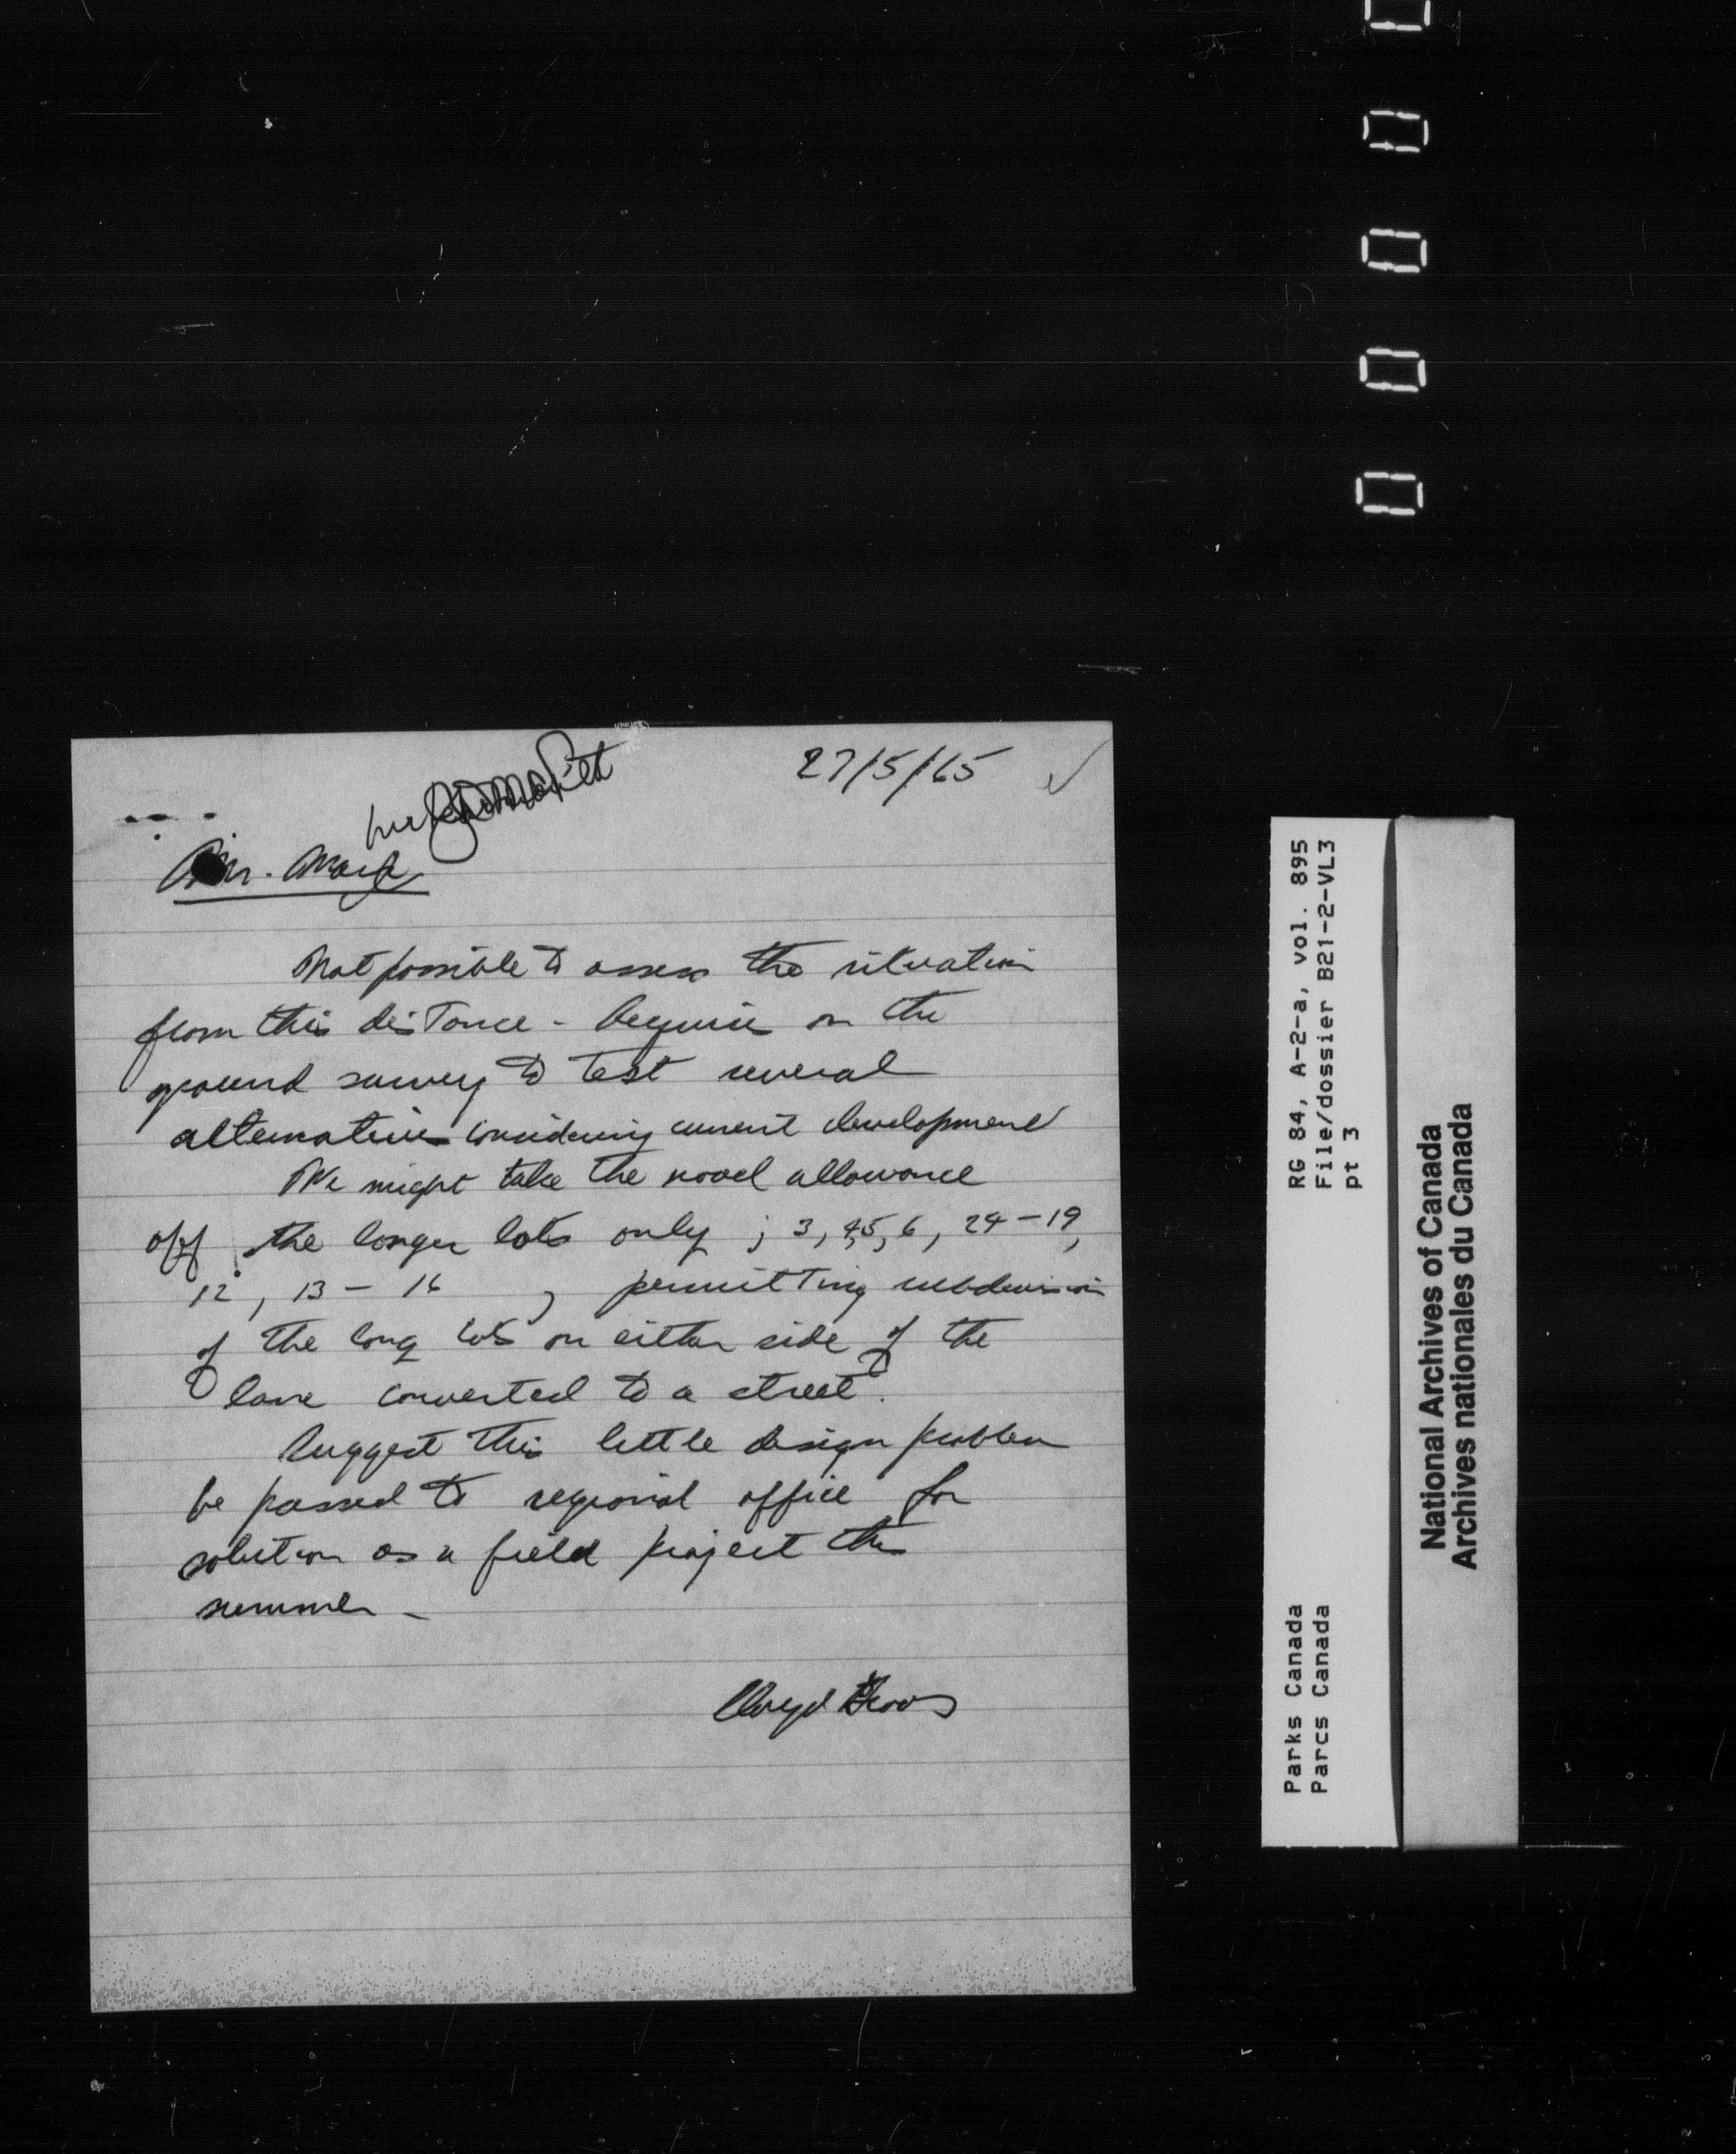 27/5/65
Not possible to assess the situation
from this distance - Requires on the
ground survey to test several
alternatives considering current development
We might take the road allowance
off the longer lots only ; 3, 4,5, 6, 24-19,
12, 13 - 16 , permitting subdivision
of the long lots on either side of the
lane converted to a street.
Suggest this little design problem
be passed to regional office for
solution as a field project this
summer -
Lloyd
RG 84, A-2-a, vol. 895
File/dossier B21-2-VL3
pt 3
Parks Canada
Parcs Canada
National Archives of Canada
Archives nationales du Canada
0 0 0 0 0